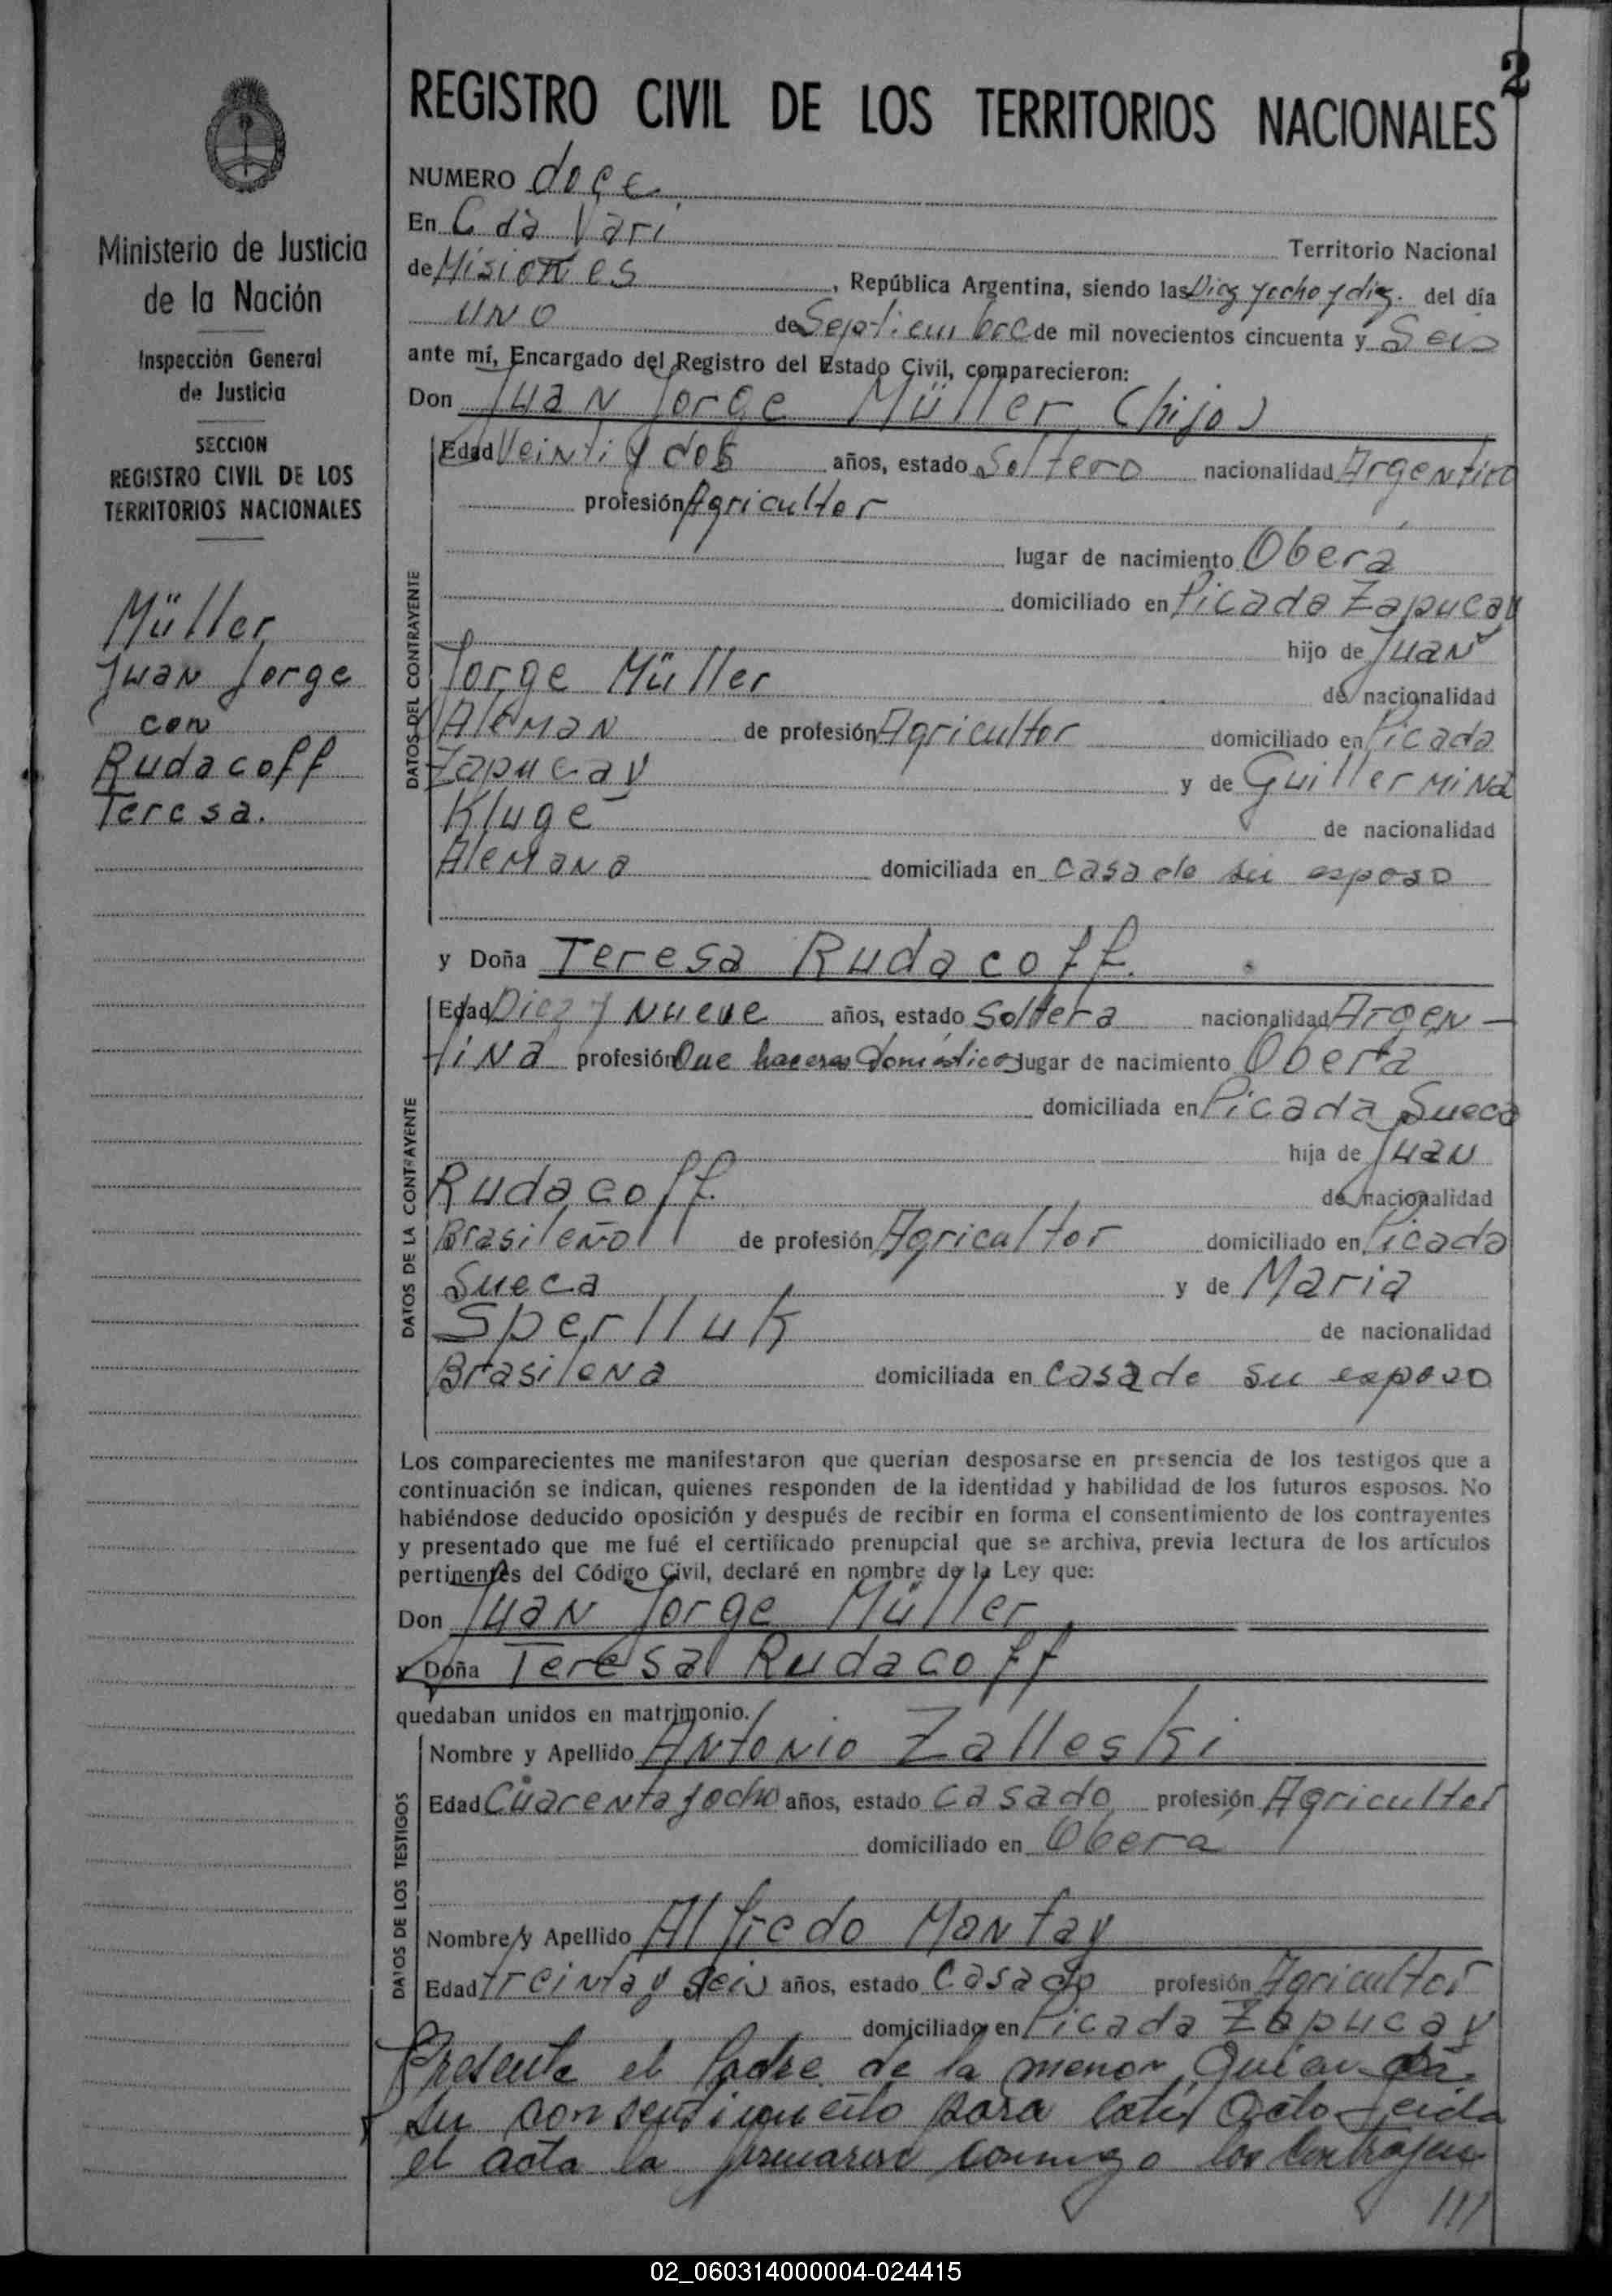 2
REGISTRO CIVIL DE LOS TERRITORIOS NACIONALES
NUMERO doce
En C dà Yari
Territorio Nacional
de Misiones, República Argentina, siendo las Diez y ocho y diez. del día
UNO de Septiembre de mil novecientos cincuenta y Seis
ante mí, Encargado del Registro del Estado Civil, comparecieron:
Don Juan Jorge Müller (hijo)
Edad Veinti y dos años, estado Soltero nacionalidad Argentino
profesión Agricultor
lugar de nacimiento Oberá
domiciliado en Picada Zapucay
hijo de Juan
Jorge Müller de nacionalidad
Aleman de profesión Agricultor domiciliado en Picada
Zapucay y de Guillermina
Kluge de nacionalidad
Alemana domiciliada en casa de su esposo
y Doña Teresa Rudacoff.
Edad Diez y nueve años, estado Soltera nacionalidad Argen-
tina profesión Que haceres Domésticos lugar de nacimiento Oberá
domiciliada en Picada Sueca
hija de Juan
Rudacoff. de nacionalidad
Brasileño de profesión Agricultor domiciliado en Picada
Sueca y de Maria
Sperlluk de nacionalidad
Brasilena domiciliada en Casa de su esposo
Los comparecientes me manifestaron que querían desposarse en presencia de los testigos que a
continuación se indican, quienes responden de la identidad y habilidad de los futuros esposos. No
habiéndose deducido oposición y después de recibir en forma el consentimiento de los contrayentes
y presentado que me fué el certificado prenupcial que se archiva, previa lectura de los artículos
pertinentes del Código Civil, declaré en nombre de la Ley que:
Don Juan Jorge Müller
y Doña Teresa Rudacoff
quedaban unidos en matrimonio.
Nombre y Apellido Antonio Zalleski
Edad Cuarenta y ocho años, estado Casado profesión Agricultor
domiciliado en Oberá
Nombre y Apellido Alfredo Mantay
Edad Treinta y seis años, estado Casado profesión Agricultor
domiciliado en Picada Zapucay
Presente el Padre de la menor, Quien dá
su consentimiento para este Acto Leida
el acta la firmaron conmigo los Contrayen
///
DATOS DEL CONTRAYENTE
DATOS DE LA CONTRAYENTE
DATOS DE LOS TESTIGOS
Ministerio de Justicia
de la Nación
Inspección General
de Justicia
SECCION
REGISTRO CIVIL DE LOS
TERRITORIOS NACIONALES
Müller
Juan Jorge
con
Rudacoff
Teresa.
02_060314000004-024415